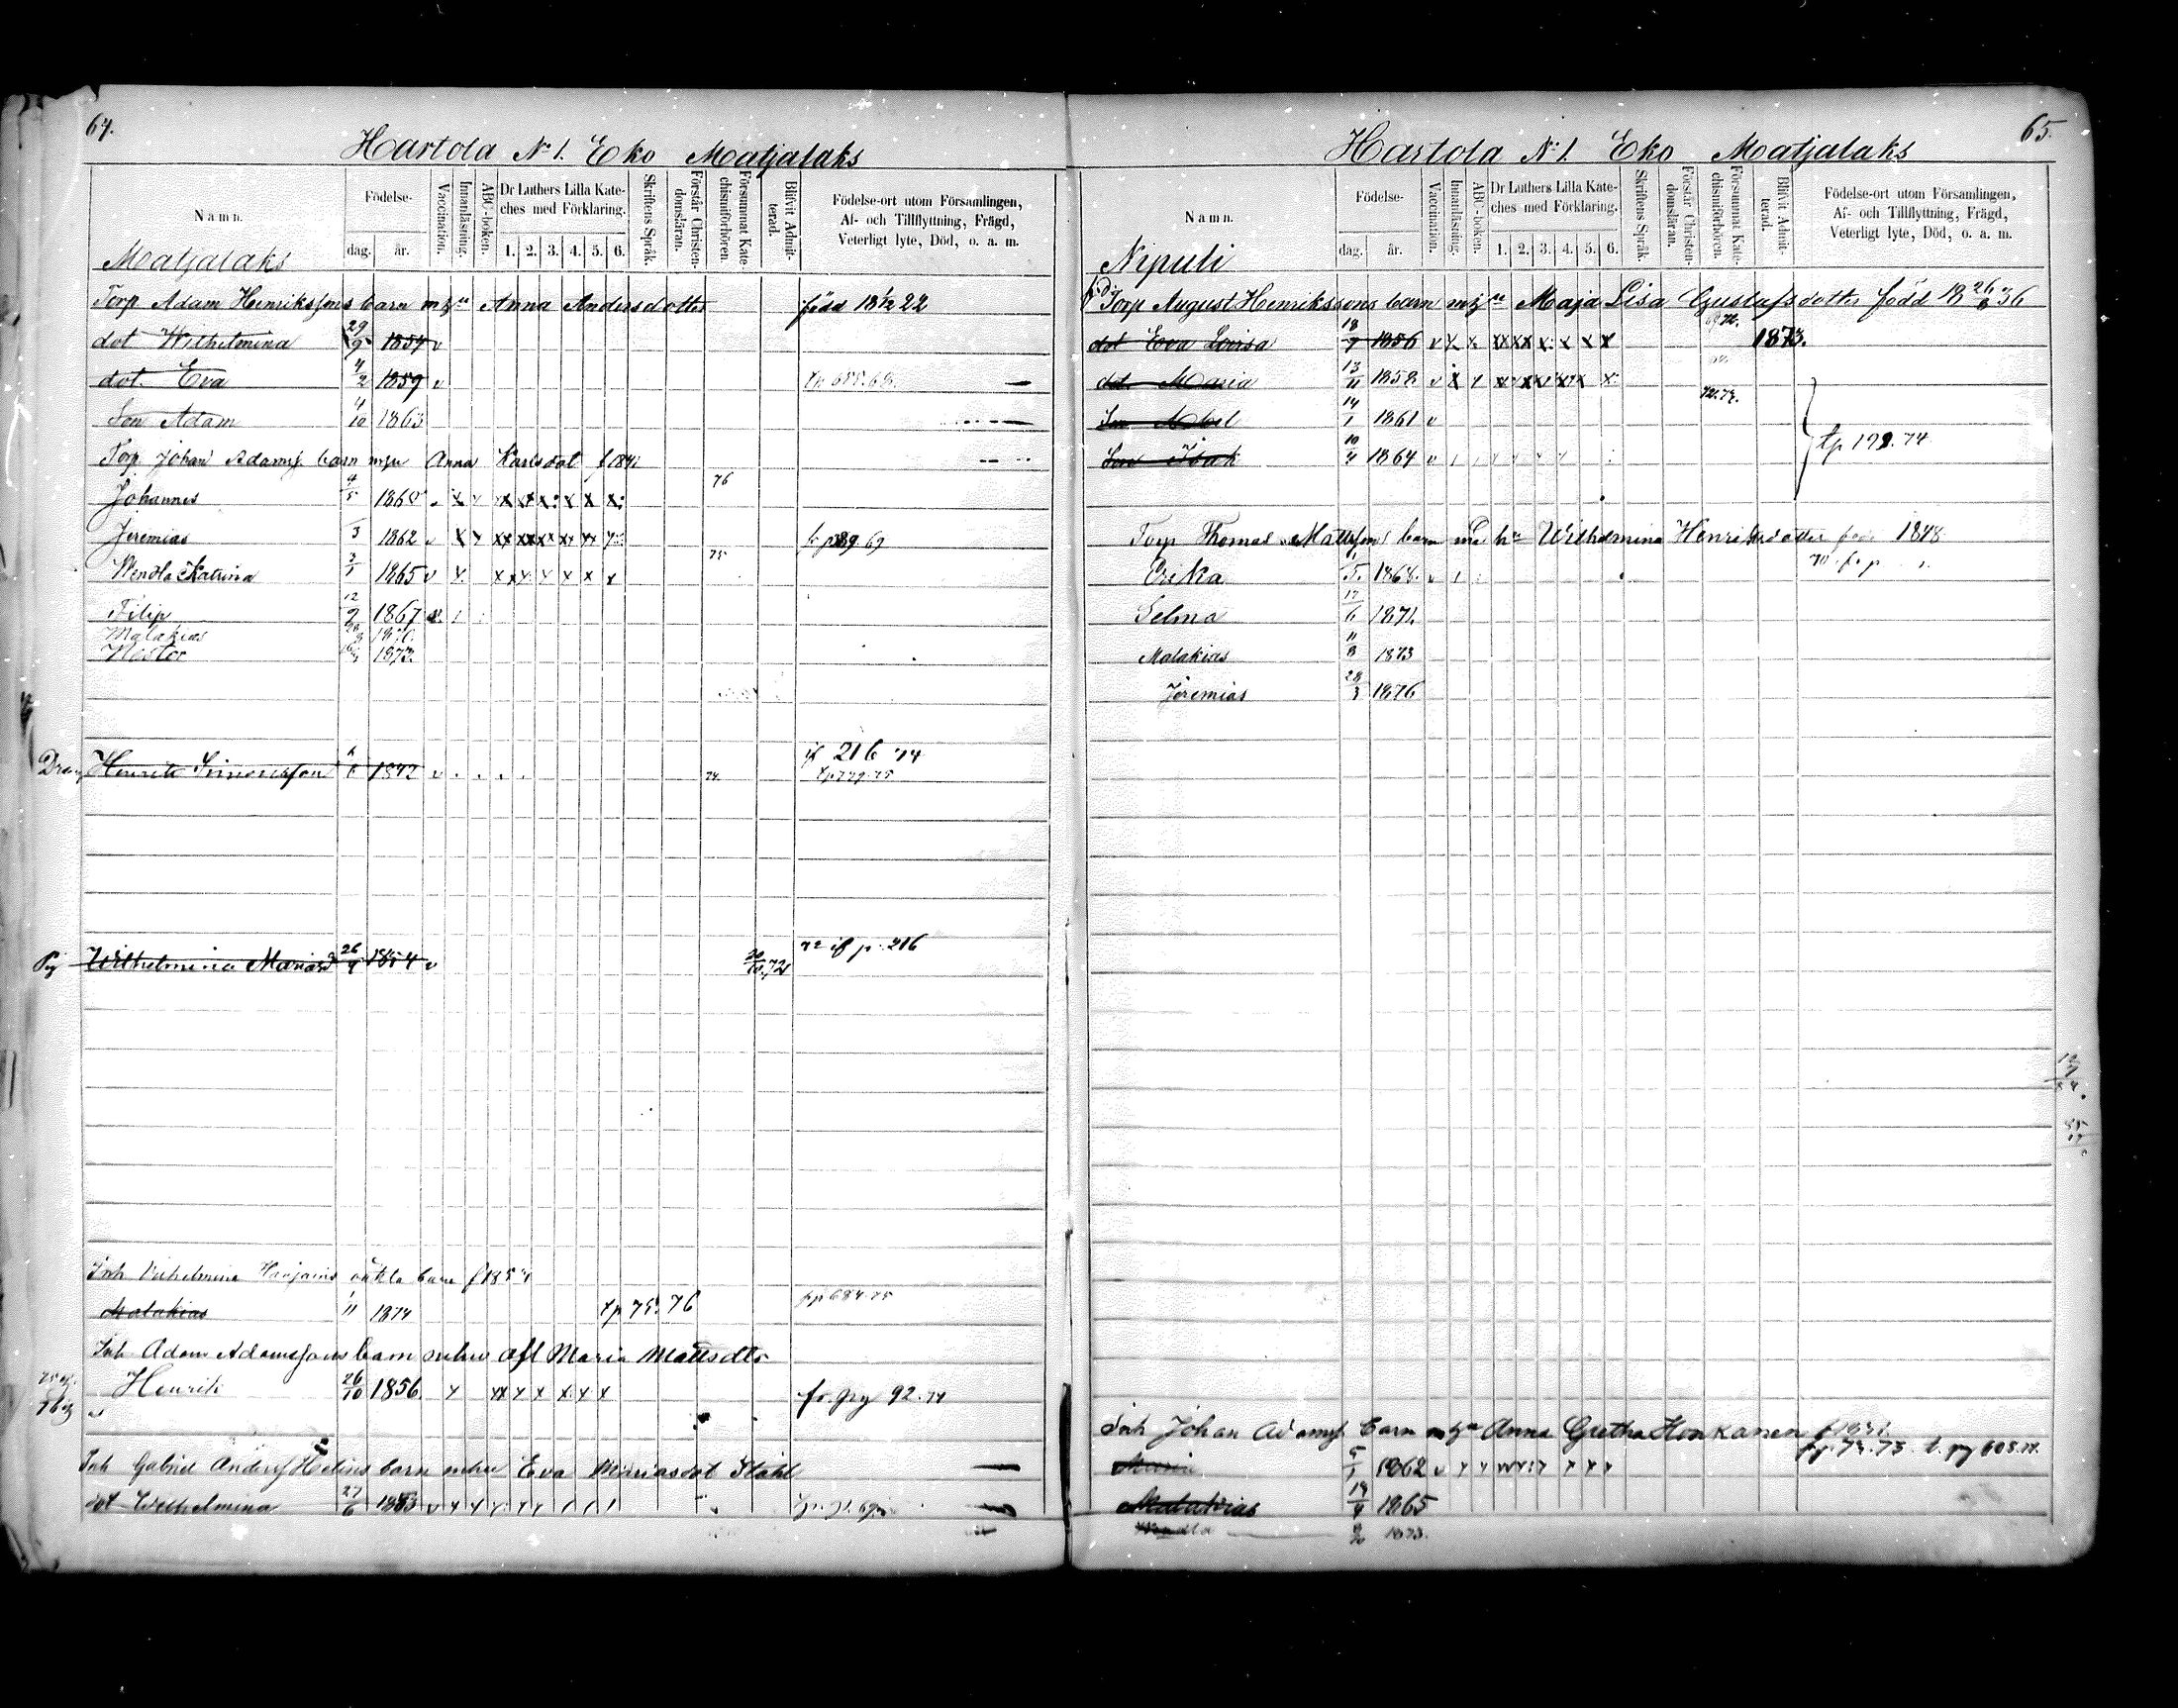 64.
Hartola No 1. Eko Matjalaks
Namn.
Födelse-
dag.
år.
Vaccination.
Innanläsning.
ABC-boken.
Dr Luthers Lilla Kate-
ches med Förklaring.
1. 2. 3. 4. 5. 6.
Skriftens Språk.
Förstår Christen-
domsläran.
Försummat Kate-
chismiförhören.
Blifvit Admit-
terad.
Födelse-ort utom Församlingen,
Af- och Tillflyttning, Frägd,
Veterligt lyte, Död, o. a. m.
Matjalaks
Torp Adam Henrikssons barn m hu Anna Andersdotter född 18 1/12 22
dot Wilhelmina 29/9 1854 v
dot. Eva 4/2 1859 v
Son Adam 4/10 1863
Torp Johan Adamsf. barn m hu Anna Karlsdot f 184
Johannes 4/5 1860 x x x x x x x x 76
Jeremias 3 1862 v x x x x x x x x 69
Wendla Katrina 2/1 1865 v x x x x x x x 75
Filip 12/9 1867
Malakias 1870
Nestor 1873
Dräng Henrik Simonsson 6 1842 v 74. if 216 74
tp 729.75
Pig Wilhelmina Mariasd 26/4 1854 v 20/10 72 72 if p. 216
Inh Vilhelmina oäkta barn f 185
Malakias 1/11 1874 tp 75. 76 fr p 684.75
Inh Adam Adamssons barn m hu afl Maria Mattsdtr
Henrik 26/10 1856 x x x x x x x fr. pg 92.74
Inh Gabriel Andersf Helin barn m hu Eva Mariasdot Ståhl
dot Wilhelmina 27/6 1853 v
65.
Hartola No 1. Eko Matjalaks
Namn.
Födelse-
dag.
år.
Vaccination.
Innanläsning.
ABC-boken.
Dr Luthers Lilla Kate-
ches med Förklaring.
1. 2. 3. 4. 5. 6.
Skriftens Språk.
Förstår Christen-
domsläran.
Försummat Kate-
chismiförhören.
Blifvit Admit-
terad.
Födelse-ort utom Församlingen,
Af- och Tillflyttning, Frägd,
Veterligt lyte, Död, o. a. m.
Nipuli
Torp August Henrikssons barn m hu Maja Lisa Gustafsdotter född 18 26/8 36
dot Eva Lovisa 18/7 1856 v x x x x x x x x 1873.
dot Maria 13/11 1858 v x x x x x x x x
Son Abel 14/1 1861 v 72.73.
Son Isak 10/4 1864 v tp 192.74
Torp Thomas Mattssons barn med hu Wilhelmina Henriksdotter 1848
Erika 5. 1868. v
Selma 17/6 1871,
Malakias 11/8 1873
Jeremias 28/3 1876
Inh Johan Adamsf. barn m hu Anna Gretha Honkanen
fp. 73.73. t. pg 608.
Maria 5/1 1862 v
Malakias 19/4 1865
Wendla 1873.